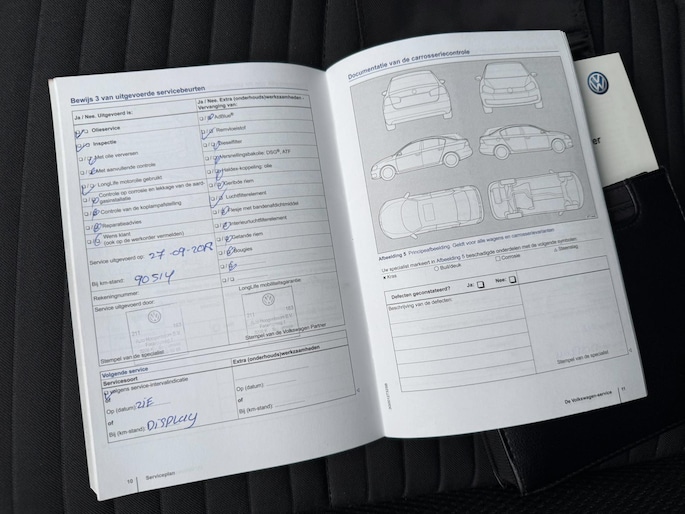 Bewijs 3 van uitgevoerde servicebeurten
Ja / Nee. Uitgevoerd is:
Olieservice
Inspectie
Met olie verversen
Met aanvullende controle
LongLife motorolie gebruikt
Controle op olie en lekkage van de aard-
gasinstallatie
Controle van de koplampafstelling
Reparatieadvies
Wens klant
(ook op de werkorder vermelden)
Service uitgevoerd op: 27-09-201
Bij km-stand: 90514
Rekeningnummer:
Service uitgevoerd door:
Stempel van de specialist
Ja / Nee. Extra (onderhouds)werkzaamheden -
Vervanging van:
AdBlue®
Remvloeistof
Dieselfilter
Versnellingsbakolie: DSG®, ATF
Haldex-koppeling: olie
Geribde riem
Luchtfilterelement
Flesje met bandenafdichtmiddel
Interieurluchtfilterelement
Getande riem
Bougies
LongLife mobiliteitsgarantie
Stempel van de Volkswagen Partner
Volgende service
Servicesoort
Volgens service-intervalindicatie
of
Op (datum): ZIE
of
Bij (km-stand): DISPLAY
Extra (onderhouds)werkzaamheden
Op (datum):
of
Bij (km-stand):
10 Serviceplan
Documentatie van de carrosseriecontrole
Afbeelding 5 Principeafbeelding. Geldt voor alle wagens en carrosserievarianten
Uw specialist markeert in Afbeelding 5 beschadigde onderdelen met de volgende symbolen:
Kras
Buil/deuk
Corrosie
Steenslag
Defecten geconstateerd? Ja: Nee:
Beschrijving van de defecten:
Stempel van de specialist
De Volkswagen-service 11